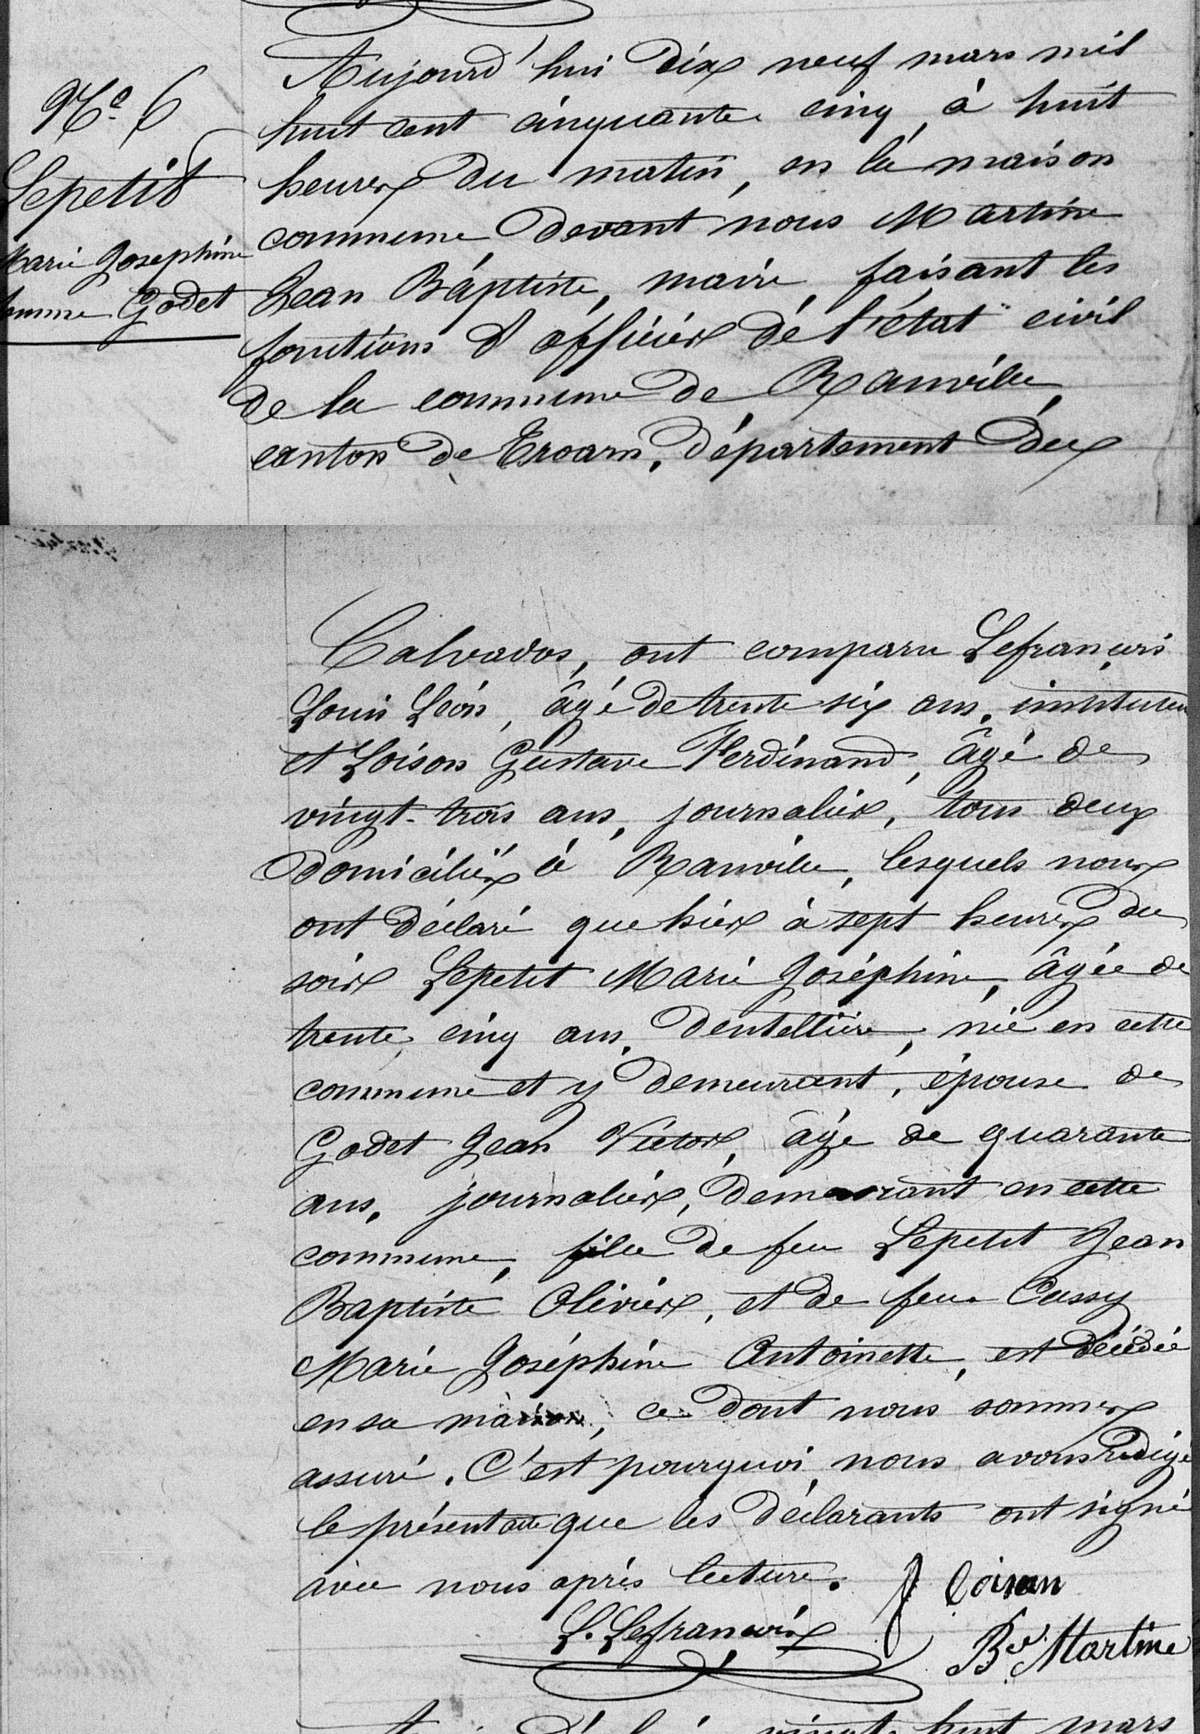 N.o 6
Lepetit
Marie Josephine
femme Godet
Aujourd'hui dix neuf mars mil
huit cent cinquante cinq à huit
heures du matin, en la maison
commune devant nous Martine
Jean Baptiste, maire, faisant les
fonctions d'officier de l'état civil
de la commune de Ranville,
canton de Troarn, département du
Calvados, ont comparu Lefrançois
Louis Léon, âgé de trente six ans, instituteur
et Loison Gustave Ferdinand, âgé de
vingt-trois ans, journalier, tous deux
domiciliés à Ranville, lesquels nous
ont déclaré que hier à sept heures du
soir Lepetit Marie Joséphine, âgée de
trente cinq ans, dentellière, née en cette
commune et y demeurant, épouse de
Godet Jean Victor, âgé de quarante
ans, journalier, demeurant en cette
commune, fille de feu Lepetit Jean
Baptiste Olivier, et de feue Cussy
Marie Joséphine Antoinette, est décédée
en sa maison, ce dont nous sommes
assuré. C'est pourquoi nous avons rédigé
le présent acte que les déclarants ont signé
avec nous après lecture.
Loison
L. Lefrançois
Bte Martine
vingt huit mars